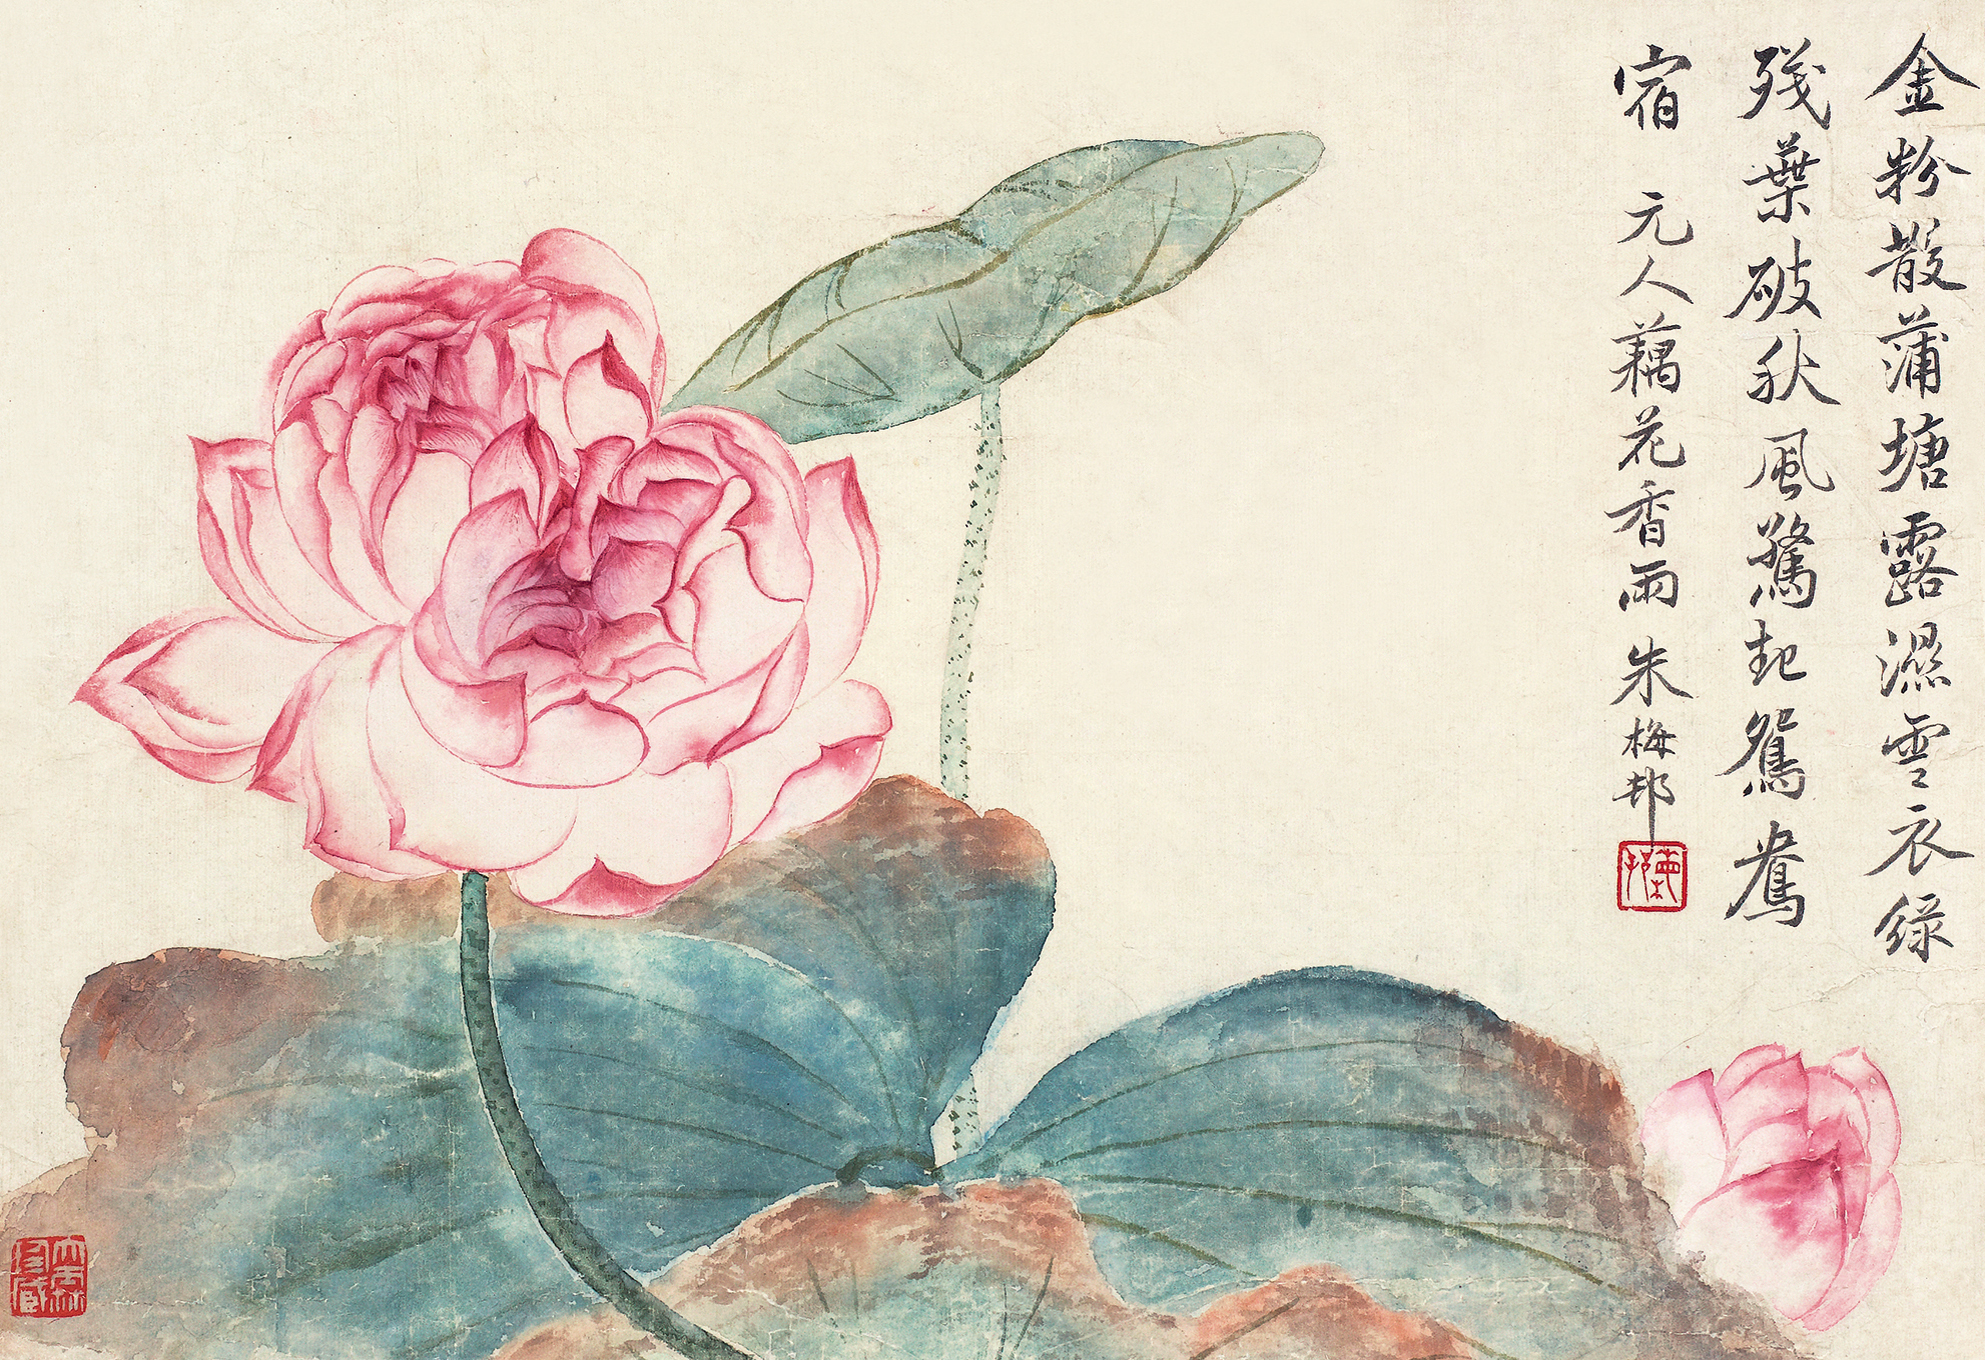 金粉散蒲塘露濕雲衣綠
殘葉破秋風驚起鴛鴦
宿 元人藕花香雨 朱梅邨
梅邨